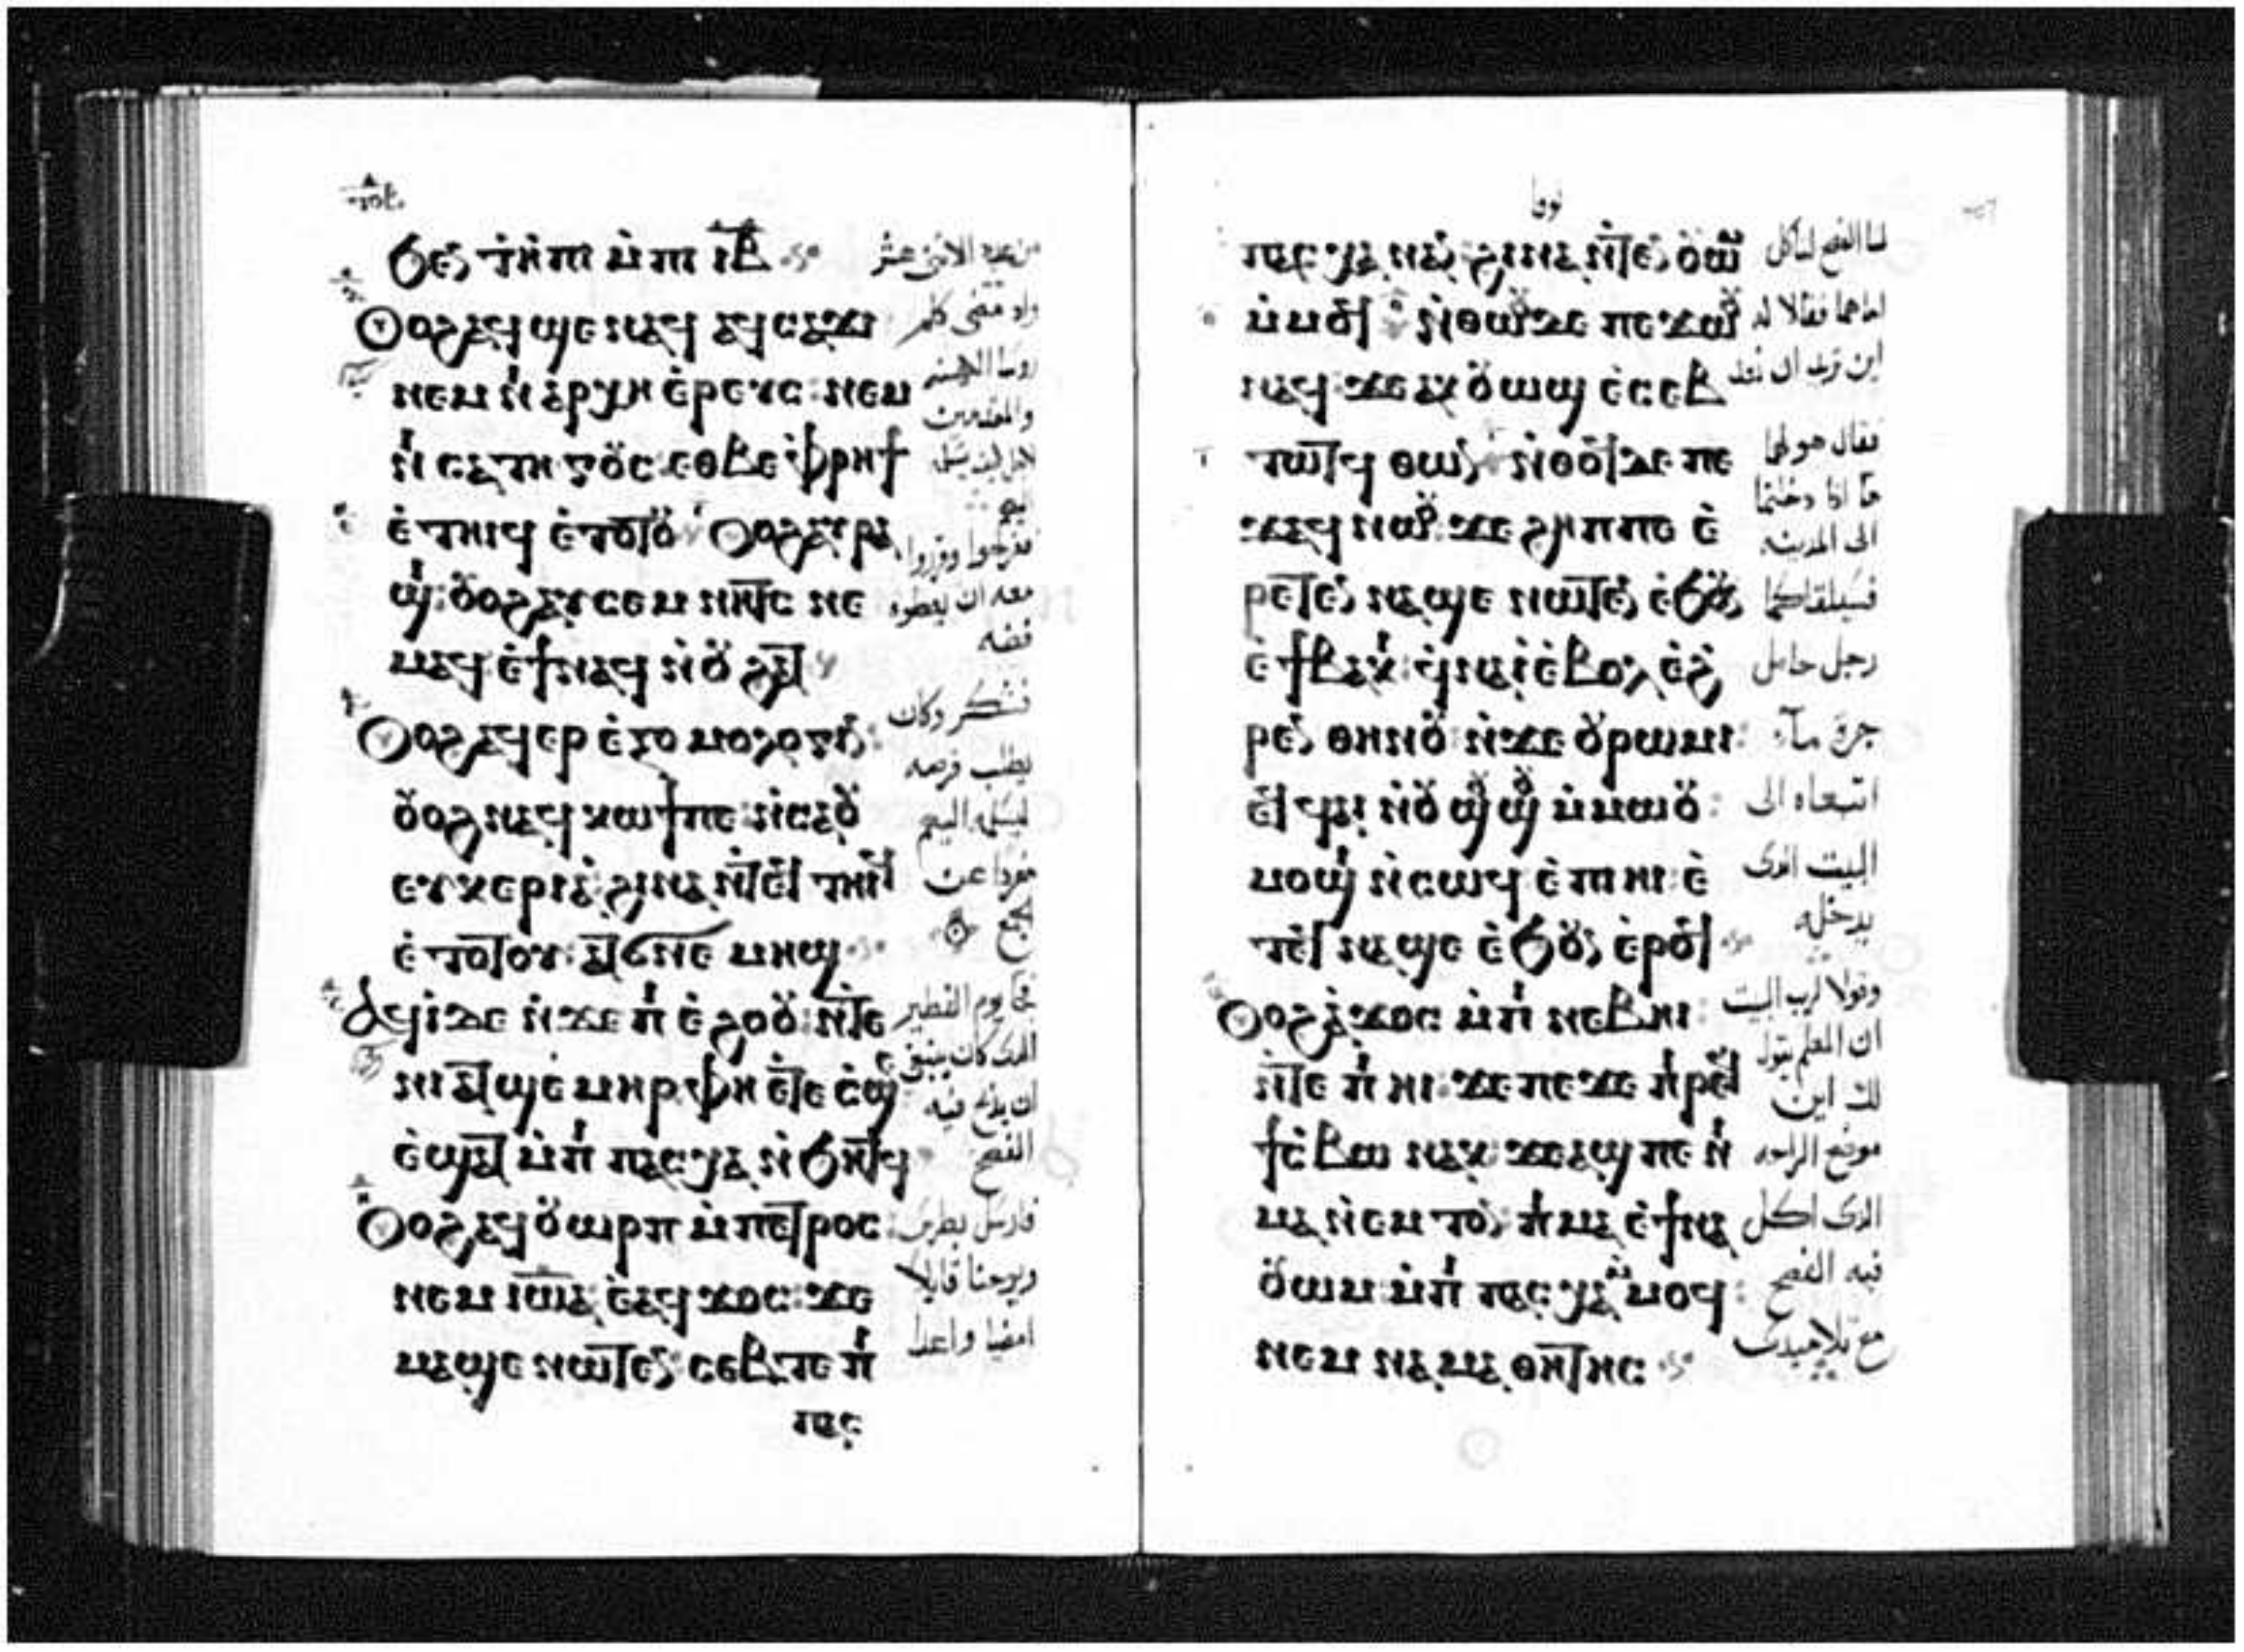 Ϧⲉⲛ ⲧⲏ̀ⲡⲓ ⲙ̀ⲡⲓ ⲓ̅ⲃ̅
Ⲟⲩⲟϩ ⲁϥϣⲉⲛⲁϥ ⲁϥⲥⲁϫⲓ
ⲛⲉⲙ ⲛⲓ ⲁⲣⲭⲏ ⲉ̀ⲣⲉⲩⲥ: ⲛⲉⲙ
ⲛⲓ ⲥⲁⲧⲏⲅⲟⲩⲥ ⲉⲑⲃⲉ ⲫ̀ⲣⲏϯ
ⲉ̀ⲧⲏⲓϥ ⲉ̀ⲧⲟⲧⲟⲩ Ⲟⲩⲟϩ ⲁⲩⲣⲁ
ϣⲓ: ⲟⲩⲟϩ ⲁⲩⲥⲉⲙⲛⲏⲧⲥ ⲛⲉ
ⲙⲁϥ ⲉ̀ϯⲛⲁϥ ⲛ̀ⲟⲩϩⲁⲧ
Ⲟⲩⲟϩ ⲁϥⲉⲣ ⲉ̀ⲝⲟⲙⲟⲗⲟⲅⲓⲛ:
ⲟⲩⲟϩ ⲛⲁϥⲕⲱϯ ⲡⲉ: ⲛ̀ⲥⲁⲟⲩ
ⲉⲩⲕⲉⲣⲓⲁ: ϩⲓⲛⲁ ⲛ̀ⲧⲉϥ ⲧⲏⲓϥ
ⲉ̀ⲧⲟⲧⲟⲩ: ⲁⲧϭⲛⲉ ⲙⲏϣ
Ⲁϥⲓ̀ ⲇⲉ ⲛ̀ϫⲉ ⲡⲓ ⲉ̀ϩⲟⲟⲩ: ⲛ̀ⲧⲉ
ⲛⲓ ⲁⲧϣⲉ̀ⲙⲏⲣ ⲫⲏ ⲉⲧⲉ ⲥ̀ϣⲉ
ⲉ̀ϣⲁⲧ ⲙ̀ⲡⲓ ⲡⲁⲥⲭⲁ ⲛ̀ϧⲏⲧϥ
Ⲟⲩⲟϩ ⲁϥⲟⲩⲱⲣⲡ ⲙ̀ⲡⲉⲧⲣⲟⲥ:
ⲛⲉⲙ ⲓⲱⲁ: ⲉ̀ⲁϥϫⲟⲥ: ϫⲉ
ⲙⲁϣⲉ ⲛⲱⲧⲉⲛ: ⲥⲉⲃⲧⲉ ⲡⲓ
ⲡⲁⲥ
من عدد الاثنى عشر
فمضى وكلم
والمقدمين
ففرحوا وقرروا
معه ان يعطوه
فضه
فشكر وكان
يطلب فرصه
ليسلمه اليهم
مفردا عن
الجمع
فجا يوم الفطير
الدى كان ينبغى
ان يذبح فيه
الفصح
فارسل بطرس
ويوحنا قايلا
امضيا واعدا
ⲡⲁⲥⲭⲁ ⲛⲁⲛ: ϩⲓⲛⲁ ⲛ̀ⲧⲉⲛ ⲟⲩⲱⲙ
ⲙ̀ⲙⲟϥ: ⲛ̀ⲑⲱⲟⲩ ⲇⲉ ⲡⲉϫⲱⲟⲩ
ⲛⲁϥ: ϫⲉ ⲁⲕ ⲟⲩⲱϣ ⲉ̀ⲥⲉⲃ
ⲧⲱⲧϥ ⲑⲱⲛ: ⲛ̀ⲑⲟϥ ⲇⲉ ⲡⲉ
ϫⲁϥ ⲛⲱⲟⲩ: ϫⲉ ϩⲏⲡⲡⲉ ⲉ̀
ⲣⲉⲧⲉⲛ ⲛⲁϣⲉ ⲛⲱⲧⲉⲛ ⲉ̀ϧⲟⲩⲛ
ⲉ̀ϯⲃⲁⲕⲓ: ϥ̀ⲛⲁⲓ̀ ⲉ̀ⲃⲟⲗ ⲉ̀ϩ
ⲣⲉⲛ ⲑⲏⲛⲟⲩ: ⲛ̀ϫⲉ ⲟⲩⲣⲱⲙⲓ:
ⲉϥ ϥⲁⲓ ⲛ̀ⲟⲩ ϣⲟϣⲟⲩ ⲙ̀ⲙⲱⲟⲩ:
ⲙⲟϣⲓ ⲛ̀ⲥⲱϥ ⲉ̀ⲡⲓⲏⲓ: ⲉ̀
ⲧⲉϥ ⲛⲁϣⲉ ⲉ̀ϧⲟⲩⲛ ⲉ̀ⲣⲟϥ
Ⲟⲩⲟϩ ⲁ̀ϫⲟⲥ ⲙ̀ⲡⲓ ⲛⲉⲃⲏⲓ:
ⲛ̀ⲧⲉ ⲡⲓ ⲏⲓ: ϫⲉ ⲡⲉϫⲉ ⲡⲓ ⲣⲉϥ
ϯⲥ̀ⲃⲱ ⲛⲁⲕ: ϫⲉ ⲁϣ ⲡⲉ ⲡⲓ
ⲙⲁ ⲛ̀ⲉⲙⲧⲟⲛ: ⲡⲓⲙⲁ ⲉ̀ϯⲛⲁ
ⲟⲩⲱⲙ ⲙ̀ⲡⲓ ⲡⲁⲥⲭⲁ ⲙⲙⲟϥ:
ⲛⲉⲙ ⲛⲁ ⲙⲁⲑⲏⲧⲏⲥ
لنا الفصح لناكل
اما هما فقالا له
اين تريد ان نعد
فقال هو لهما
الى المدينه
فسيلقاكما
رجل حامل
جرة مآء
اتبعاه الى
البيت الدى
يدخله
وقولا لرب البيت
ان المعلم يقول
لك اين
موضع الراحه
الدى اكل
فيه الفصح
مع تلاميدى